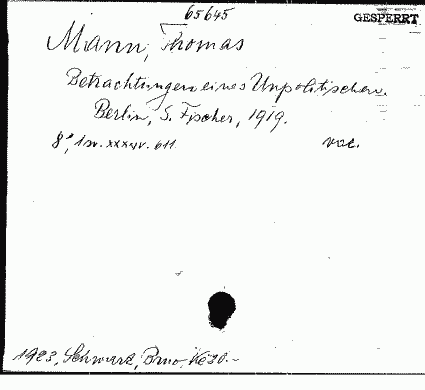 65645
GESPERRT
Mann, Thomas
Betrachtungen eines Unpolitischen.
Berlin, S. Fischer, 1919.
8°, 1 sv. xxxiv. 611. voc.
1923, Schwarz, Brno, Kč 30.-